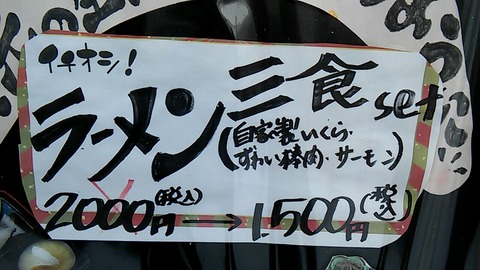 イチオシ!
ラーメン三食set
(自家製いくら・
ずわい棒肉・サーモン)
2000円(税込)→1,500円(税込)